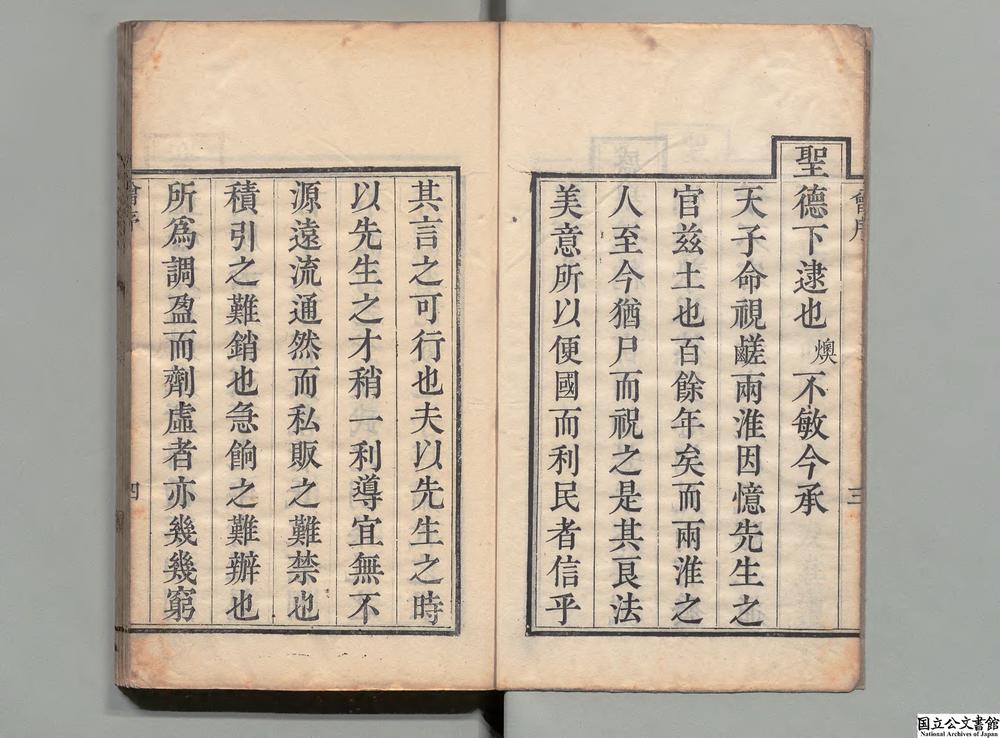 聖德下逮也燠不敏今承
天子命視鹺兩淮因憶先生之
官兹土也百餘年矣而兩淮之
人至今猶尸而祝之是其良法
美意所以便國而利民者信乎
其言之可行也夫以先生之時
以先生之才稍一利導宜無不
源遠流通然而私販之難禁也
積引之難銷也急餉之難辦也
所爲調盈而劑虛者亦幾幾窮
國立公文書館
National Archives of Japan